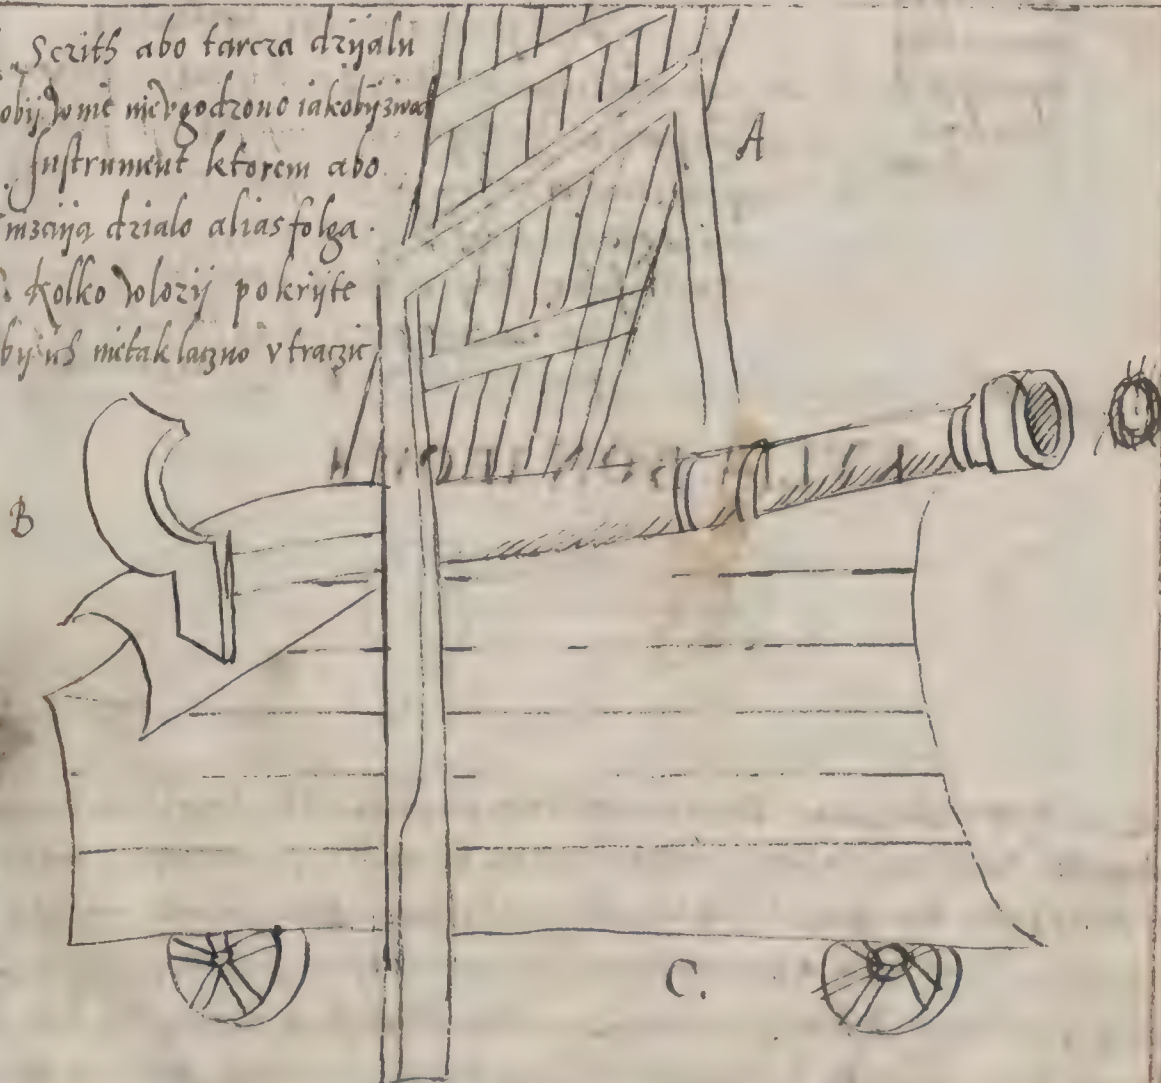 Sczith abo tarcza dzijalu
obij w nie nievgodzono iakobij zwac
Instrument ktorem abo
dzialo alias folga
kolko wlozij pokrijte
bij ich nietak laczno vtraczic
A
B
C.